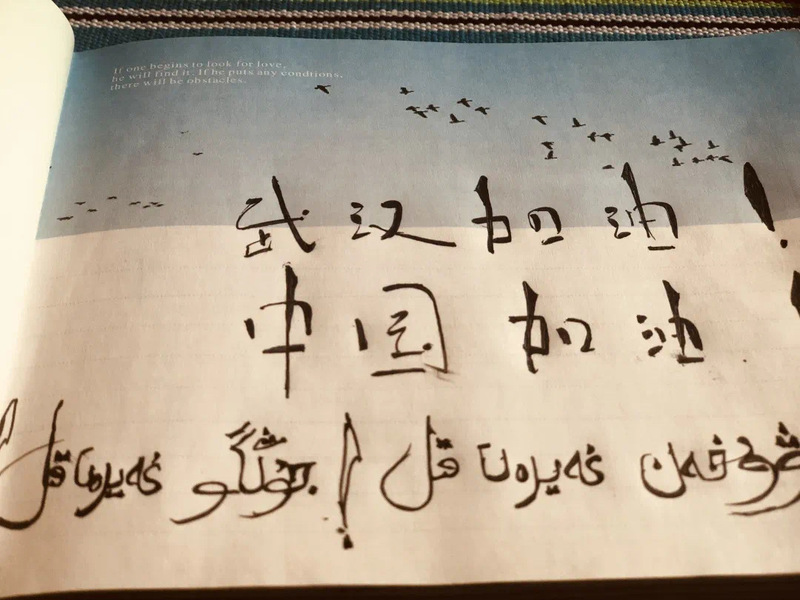 If one begins to look for love,
he will find it. If he puts any condtions,
there will be obstacles.
武汉加油!
中国加油!
غەيرەت قىل ! جۇڭگو غەيرەت قىل !